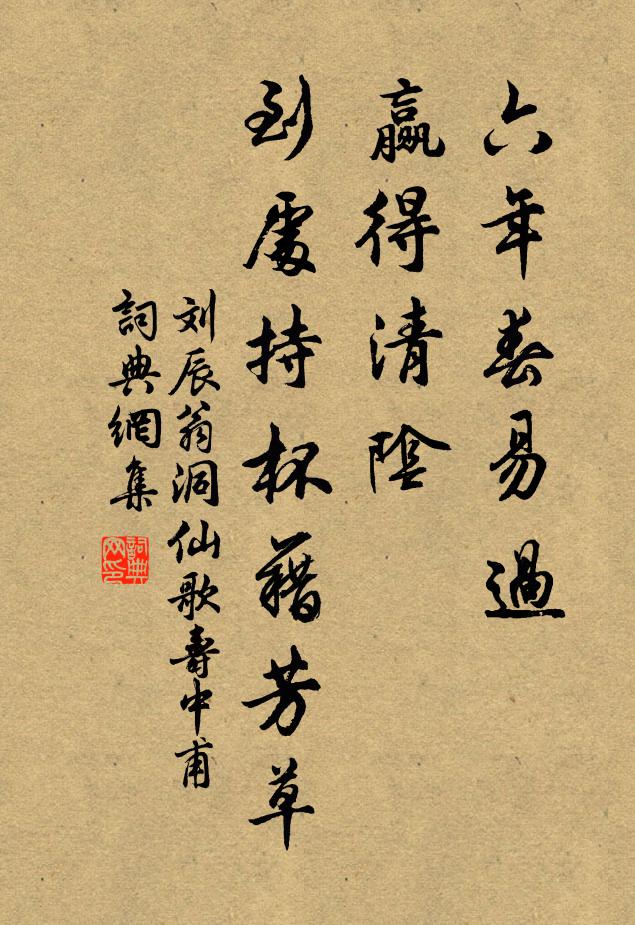 六年春易過
贏得清陰
到處持杯藉芳草
刘辰翁洞仙歌壽中甫
詞典網集
詞典网印